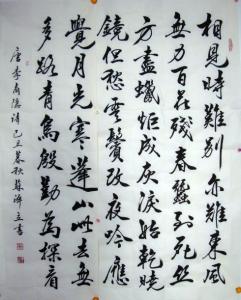 相見時難別亦難東風
無力百花殘春蠶到死絲
方盡蠟炬成灰淚始乾曉
鏡但愁雲鬢改夜吟應
覺月光寒蓬山此去無
多路青鳥殷勤為探看
唐李商隱詩己丑暮秋蘇立書